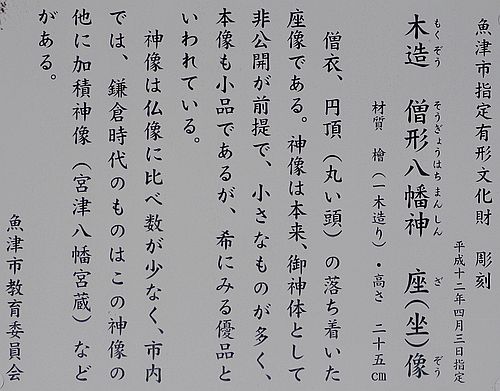 魚津市指定有形文化財　彫刻
平成十二年四月三日指定
木造　僧形八幡神　座(坐)像
もくぞう　そうぎょうはちまんしん　ざ　ぞう
材質　檜(一木造り)・高さ　二十五㎝
僧衣、円頂(丸い頭)の落ち着いた
座像である。神像は本来、御神体として
非公開が前提で、小さなものが多く、
本像も小品であるが、希にみる優品と
いわれている。
神像は仏像に比べ数が少なく、市内
では、鎌倉時代のものはこの神像の
他に加積神像(宮津八幡宮蔵)など
がある。
魚津市教育委員会